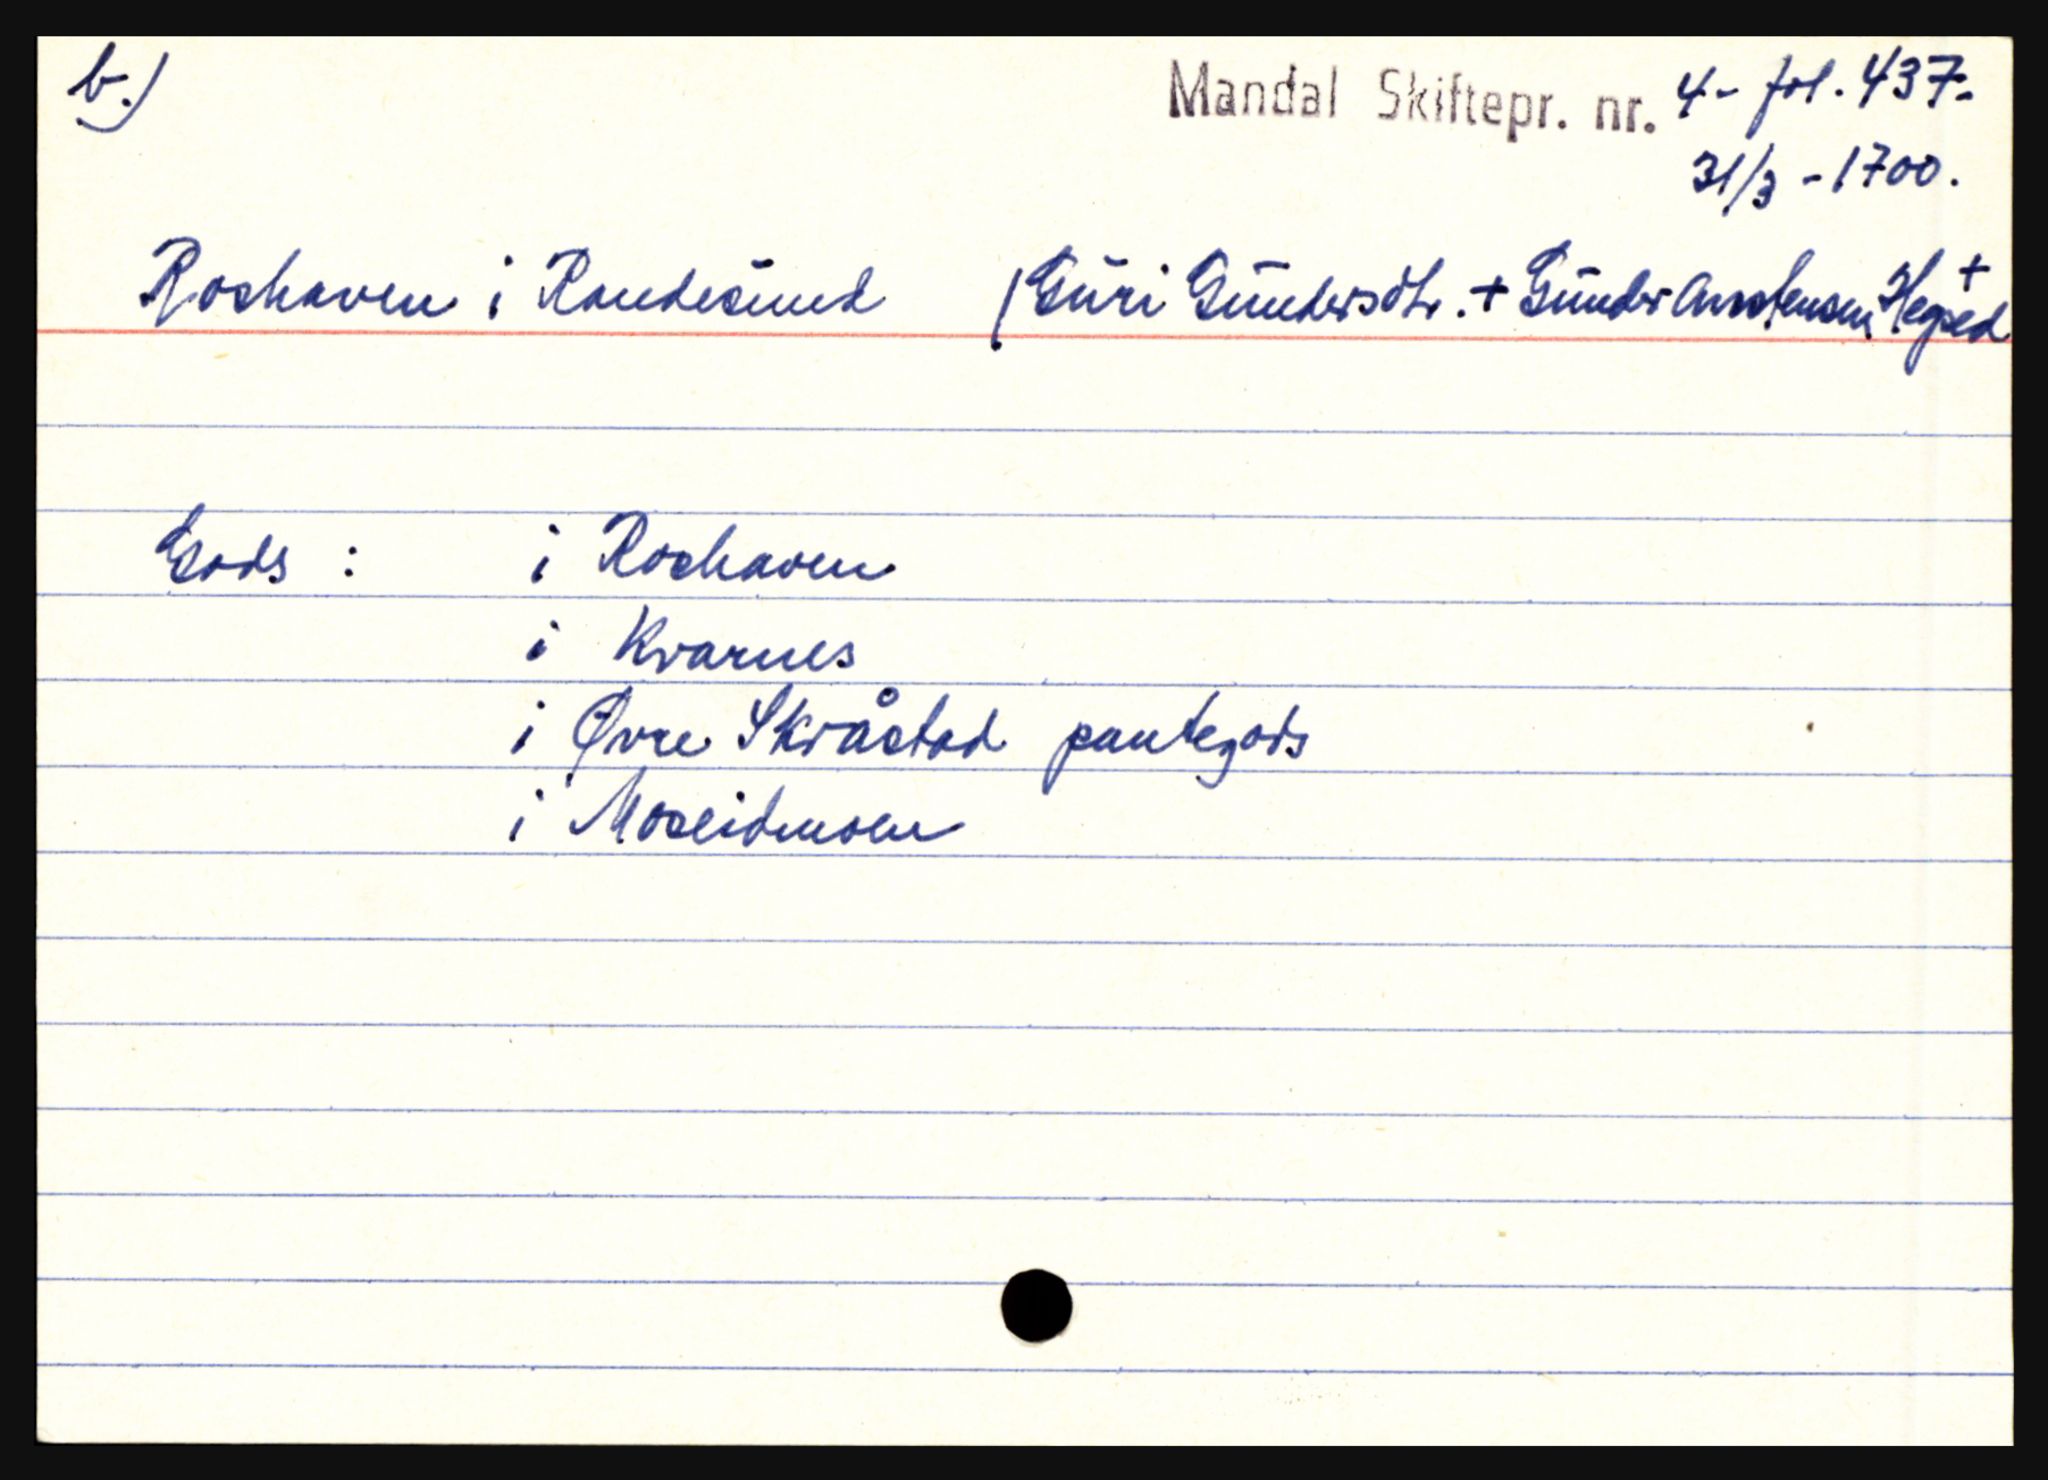 b.)
Mandal Skiftepr. nr. 4- fol. 437-
31/3 - 1700.
Roshaven i Randesund / Guri Gundersdtr. + Gunder Arnstensen Hegsed +
Gods : i Roshaven
i Kvarnes
i Øvre Skråstad pantegods
i Moseidmoen